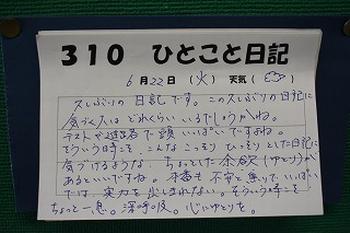 310 ひとこと日記
6月22日(火) 天気( )
久しぶりの日記です。この久しぶりの日記に
気づく人はどれくらいいるでしょうかね。
テストや進路で頭いっぱいですよね。
そういう時こそ、こんなこっそりひっそりとした日記に
気づけるような、ちょっとした余裕(ゆとり)が
あるといいですね。本番も不安と焦りでいっぱい
では、実力を出しきれない。そういう時こそ
ちょっと一息。深呼吸。心にゆとりを。